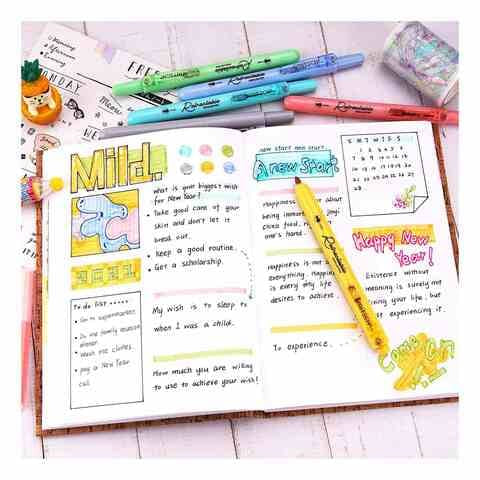 Morning
Afternoon
Evening
FREE
MONDAY
Meow
Retractable
Retractable
Retractable
Mild.
2021
To do list
Go to supermarket
family reunion
dinner
Wash the clothes
pay a New Year
call
what is your biggest wish
for New Year?
Take good care of your
skin and don't let it
break out.
Keep a good routine.
Get a scholarship.
My wish is to sleep
when I was a child.
How much you are willing
to use to achieve your wish!
new start new start
A new Start
Happiness about
being
food,
one's hand.
Happiness is not
everything. Happiness
is every my life
desires to achieve.
To experience.
Retractable
S M T W T F S
Happy New
Year!
Existence without
meaning is surely me
living your life, but
experiencing it.
Come On